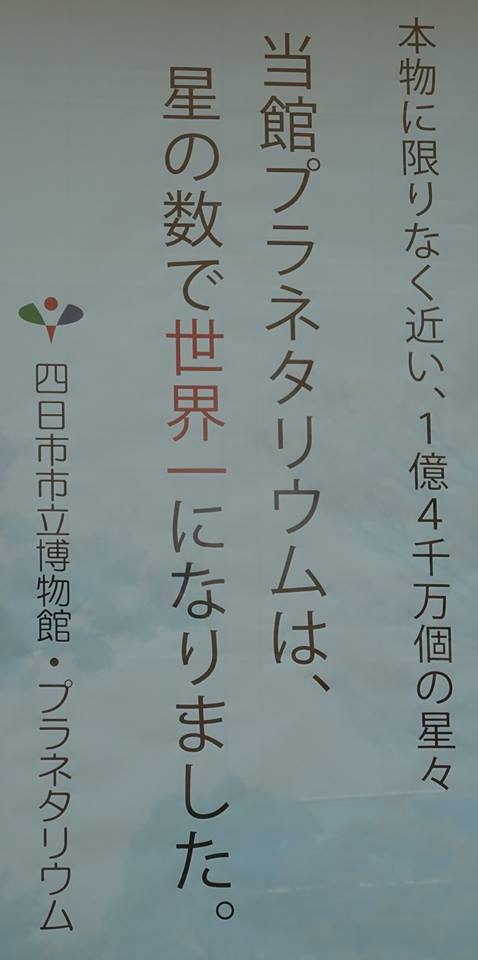 本物に限りなく近い、1億4千万個の星々
当館プラネタリウムは、
星の数で世界一になりました。
四日市市立博物館・プラネタリウム